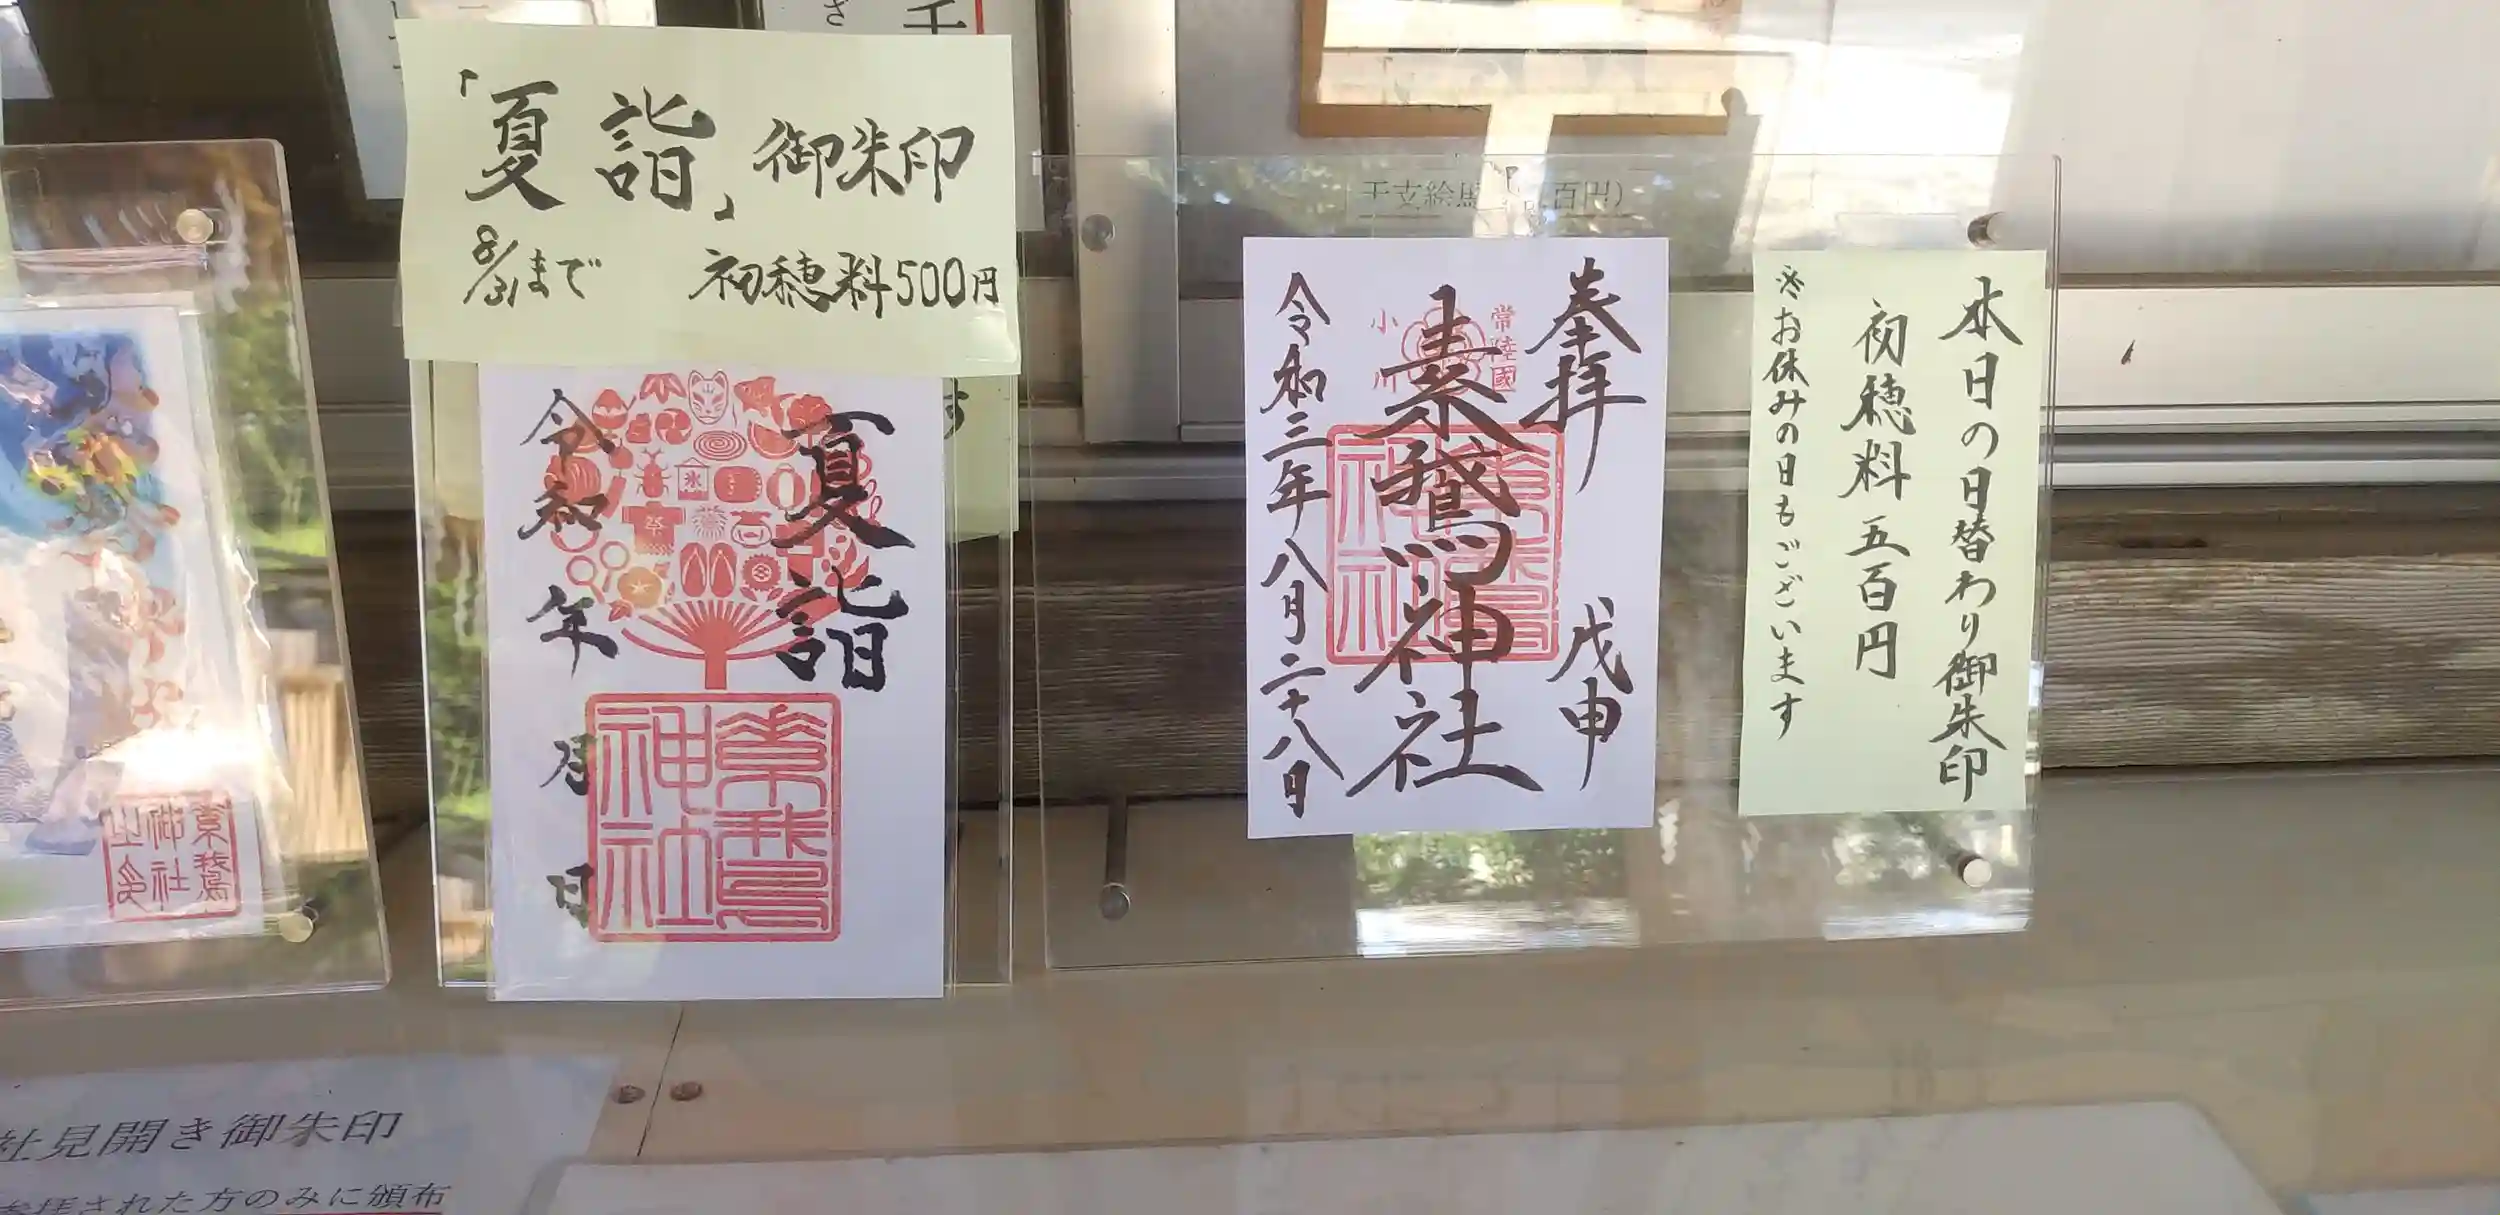 「夏詣」御朱印
8/31まで 初穂料500円
夏詣
令和 年 月 日
氷
祭
素鵞神社
奉拝 戊申
常陸國
小川
素鵞神社
令和三年八月二十八日
本日の日替わり御朱印
初穂料五百円
※お休みの日もございます
干支絵馬
百円）
素鵞
神社
社見開き御朱印
参拝された方のみに頒布